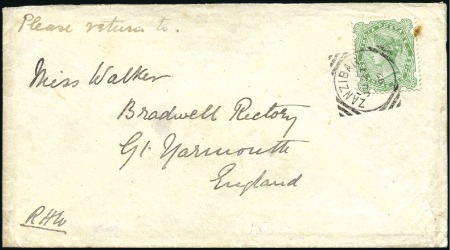 Please return to.
Miss Walker
Bradwell Rectory
Gt. Yarmouth
England
RHW
ZANZIBA